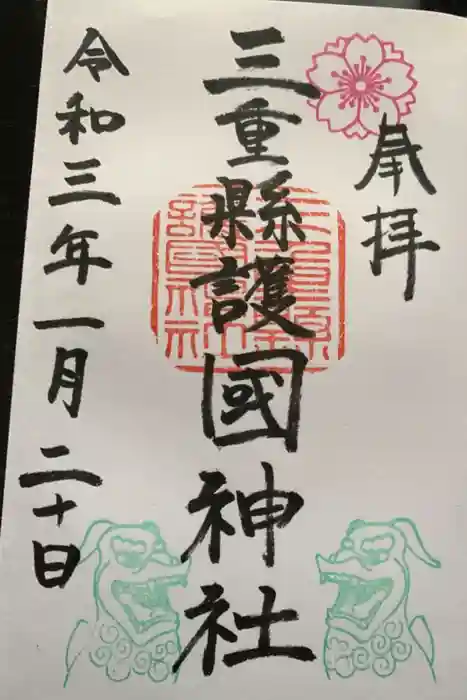 奉拝
三重縣護國神社
令和三年一月二十日